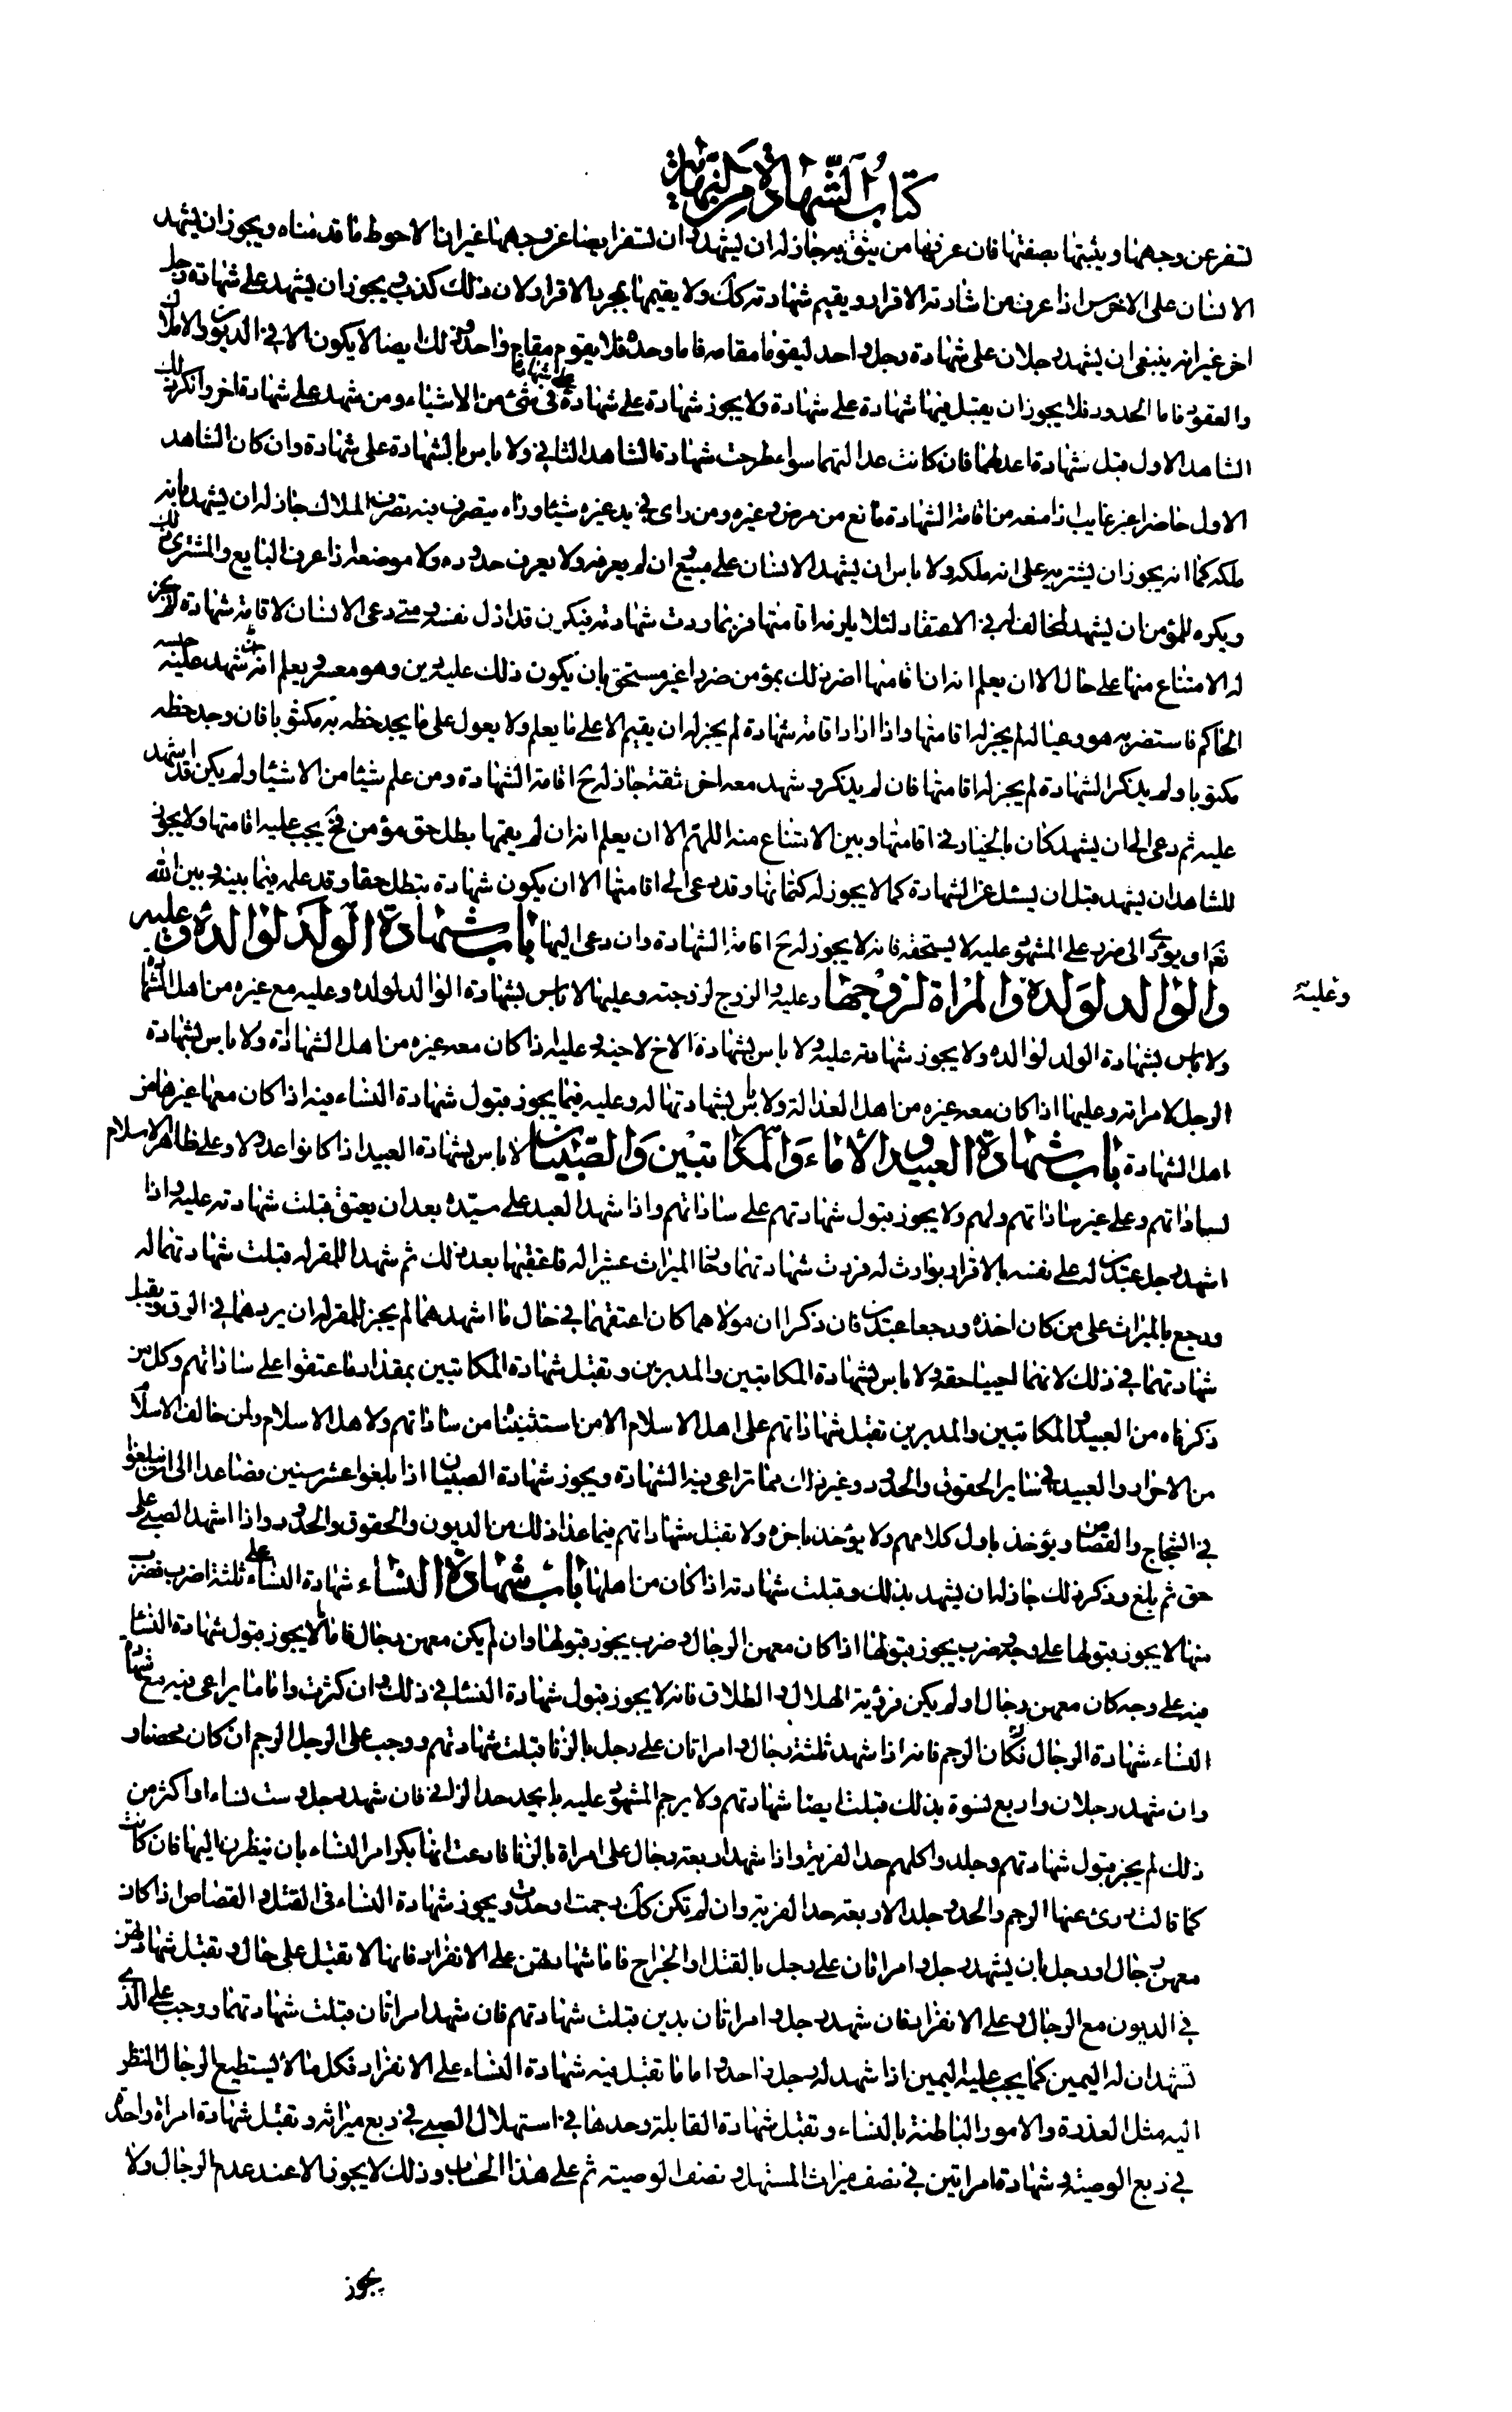 كتاب الشهادة من النهاية
لتسفر عن وجهها ويثبتها بصفتها فان عرفها من يثق به جاز له ان يشهد وان لم تسفر ايضا عن وجهها غير ان الاحوط ما قدمناه ويجوز ان يشهد
الانسان على الاخرس اذا عرف من اشارته الاقرار ويقيم شهادته كك ولا يقيمها بمجرد الاقرار لان ذلك كذب ويجوز ان يشهد على شهادة رجل
اخر غير انه ينبغى ان يشهد رجلان على شهادة رجل واحد ليقوما مقامه فاما وحده فلا يقوم مقام واحد وذلك ايضا لا يكون الا فى الديون والاملاك
والعقود فاما الحدود فلا يجوز ان يقبل فيها شهادة على شهادة ولا يجوز شهادة على شهادة على شهادة فى شئ من الاشياء ومن شهد على شهادة اخر وانكر ذلك
الشاهد الاول قبل شهادة اعدلهما فان كانت عدالتهما سواء طرحت شهادة الشاهد الثانى ولا باس بالشهادة على شهادة وان كان الشاهد
الاول حاضرا غير غايب اذا منعه من اقامة الشهادة مانع من مرض وغيره ومن راى فى يد غيره شيئا وراه يتصرف فيه تصرف الملاك جاز له ان يشهد بانه
ملكه كما انه يجوز ان يشتريه على انه ملكه ولا باس ان يشهد الانسان على مبيع وان لم يعرفه ولا يعرف حدوده ولا موضعه اذا عرف البايع والمشترى ذلك
ويكره للمؤمن ان يشهد لمخالف له فى الاعتقاد لئلا يلزمه اقامتها فربما ردت شهادته فيكون قد اذل نفسه ومتى دعى الانسان لاقامة شهادة لم يجز
له الامتناع منها على حال الا ان يعلم انه ان اقامها اضر ذلك بمؤمن ضررا غير مستحق بان يكون ذلك عليه دين وهو معسر ويعلم انه ان شهد عليه حبسه
الحاكم فاستضر به هو وعياله لم يجز له اقامتها واذا اراد اقامة شهادة لم يجز له ان يقيم الا على ما يعلم ولا يعول على ما يجد خطه به مكتوبا فان وجد خطه
مكتوبا ولم يذكر الشهادة لم يجز له اقامتها فان لم يذكر وشهد معه اخر ثقة جاز له ح اقامة الشهادة ومن علم شيئا من الاشياء ولم يكن قد اشهد
عليه ثم دعى الى ان يشهد كان بالخيار فى اقامتها وبين الامتناع منه اللهم الا ان يعلم انه ان لم يقمها بطل حق مؤمن فح يجب عليه اقامتها ولا يجوز
للشاهد ان يشهد قبل ان يسئل عن الشهادة كما لا يجوز له كتمانها وقد دعى الى اقامتها الا ان يكون شهادة يتطل حقا وقد علمه فيما بينه وبين الله
تعا او يؤدى الى ضرر على المشهود عليه لا يستحقه فانه لا يجوز له ح اقامة الشهادة وان دعى اليها باب شهادة الولد لوالده وعليه
والوالد لولده والمراة لزوجها وعليه والزوج لزوجته وعليها لا باس بشهادة الوالد لولده وعليه مع غيره من اهل الشهادة
وعليه
ولا باس بشهادة الولد لوالده ولا يجوز شهادته عليه ولا باس بشهادة الاخ لاخيه وعليه اذا كان معه غيره من اهل الشهادة ولا باس بشهادة
الرجل لامراته وعليها اذا كان معه غيره من اهل العدالة ولا باس بشهادتها له وعليه فيما يجوز قبول شهادة النساء فيه اذا كان معها غيرها من
اهل الشهادة باب شهادة العبيد والاماء والمكاتبين والصبيان لا باس بشهادة العبيد اذا كانوا عدولا وعلى ظاهر الاسلام
لساداتهم وعلى غير ساداتهم ولهم ولا يجوز قبول شهادتهم على ساداتهم واذا شهد العبد على سيده بعد ان يعتق قبلت شهادته عليه واذا
اشهد رجل عبدين له على نفسه بالاقرار بوارث له فردت شهادتهما وحاز الميراث غير المقر له فاعتقهما بعد ذلك ثم شهدا للمقر له قبلت شهادتهما له
ورجع بالميراث على من كان اخذه ورجعا عبدين فان ذكرا ان مولاهما كان اعتقهما فى حال ما اشهدهما لم يجز للمقر له ان يردهما فى الرق ويقبل
شهادتهما فى ذلك لانهما احييا حقه ولا باس بشهادة المكاتبين والمدبرين وتقبل شهادة المكاتبين بمقدار ما عتقوا على ساداتهم وكل من
ذكرناه من العبيد والمكاتبين والمدبرين تقبل شهاداتهم على اهل الاسلام الا من استثنيناه من ساداتهم ولاهل الاسلام ولمن خالف الاسلام
من الاحرار والعبيد فى ساير الحقوق والحدود وغير ذلك مما تراعى فيه الشهادة ويجوز شهادة الصبيان اذا بلغوا عشر سنين فصاعدا الى ان يبلغوا
فى الشجاج والقصاص ويؤخذ باول كلامهم ولا يؤخذ باخره ولا تقبل شهاداتهم فيما عدا ذلك من الديون والحقوق والحدود واذا اشهد الصبى على
حق ثم بلغ وذكر ذلك جاز له ان يشهد بذلك وقبلت شهادته اذا كان من اهلها باب شهادة النساء شهادة النساء على ثلثة اضرب فضرب
منها لا يجوز قبولها على وجه وضرب يجوز قبولها اذا كان معهن الرجال وضرب يجوز قبولها وان لم يكن معهن رجال فاما ما لا يجوز قبول شهادة النساء
فيه على وجه كان معهن رجال او لم يكن فرؤية الهلال والطلاق فانه لا يجوز قبول شهادة النساء فى ذلك وان كثرن واما ما يراعى فيه مع شهادة
النساء شهادة الرجال فكالرجم فانه اذا شهد ثلثة رجال وامراتان على رجل بالزنا قبلت شهادتهم ووجب على الرجل الرجم ان كان محصنا و
وان شهد رجلان واربع نسوة بذلك قبلت ايضا شهادتهم ولا يرجم المشهود عليه بل يحد حد الزانى فان شهد رجل وست نساء او اكثر من
ذلك لم يجز قبول شهادتهم وجلدوا كلهم حد الفرية واذا شهد اربعة رجال على امراة بالزنا فادعت انها بكر امر النساء بان ينظرن اليها فان كانت
كما قالت درئ عنها الرجم والحد وجلد الاربعة حد الفرية وان لم تكن كك رجمت او حدت ويجوز شهادة النساء فى القتل والقصاص اذا كان
معهن رجال او رجل بان يشهد رجل وامراتان على رجل بالقتل او الجراح فاما شهادتهن على الانفراد فانها لا تقبل على حال وتقبل شهادتهن
فى الديون مع الرجال وعلى الانفراد فان شهد رجل وامراتان بدين قبلت شهادتهم فان شهد امراتان قبلت شهادتهما ووجب على الذى
تشهدان له اليمين كما يجب عليه اليمين اذا شهد له رجل واحد واما ما تقبل فيه شهادة النساء على الانفراد فكل ما لا يستطيع الرجال النظر
اليه مثل العذرة والامور الباطنة بالنساء وتقبل شهادة القابلة وحدها فى استهلال الصبى فى ربع ميراثه وتقبل شهادة امراة واحدة
فى ربع الوصية وشهادة امراتين فى نصف ميراث المستهل ونصف الوصية ثم على هذا الحساب وذلك لا يجوز الا عند عدم الرجال ولا
يجوز